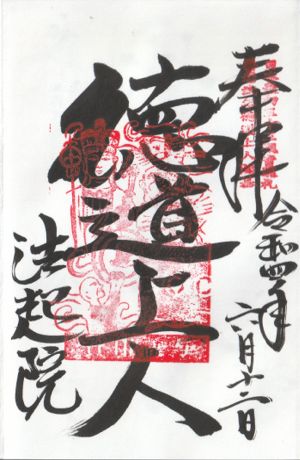 奉拝
令和四年
六月十二日
徳道上人
法起院